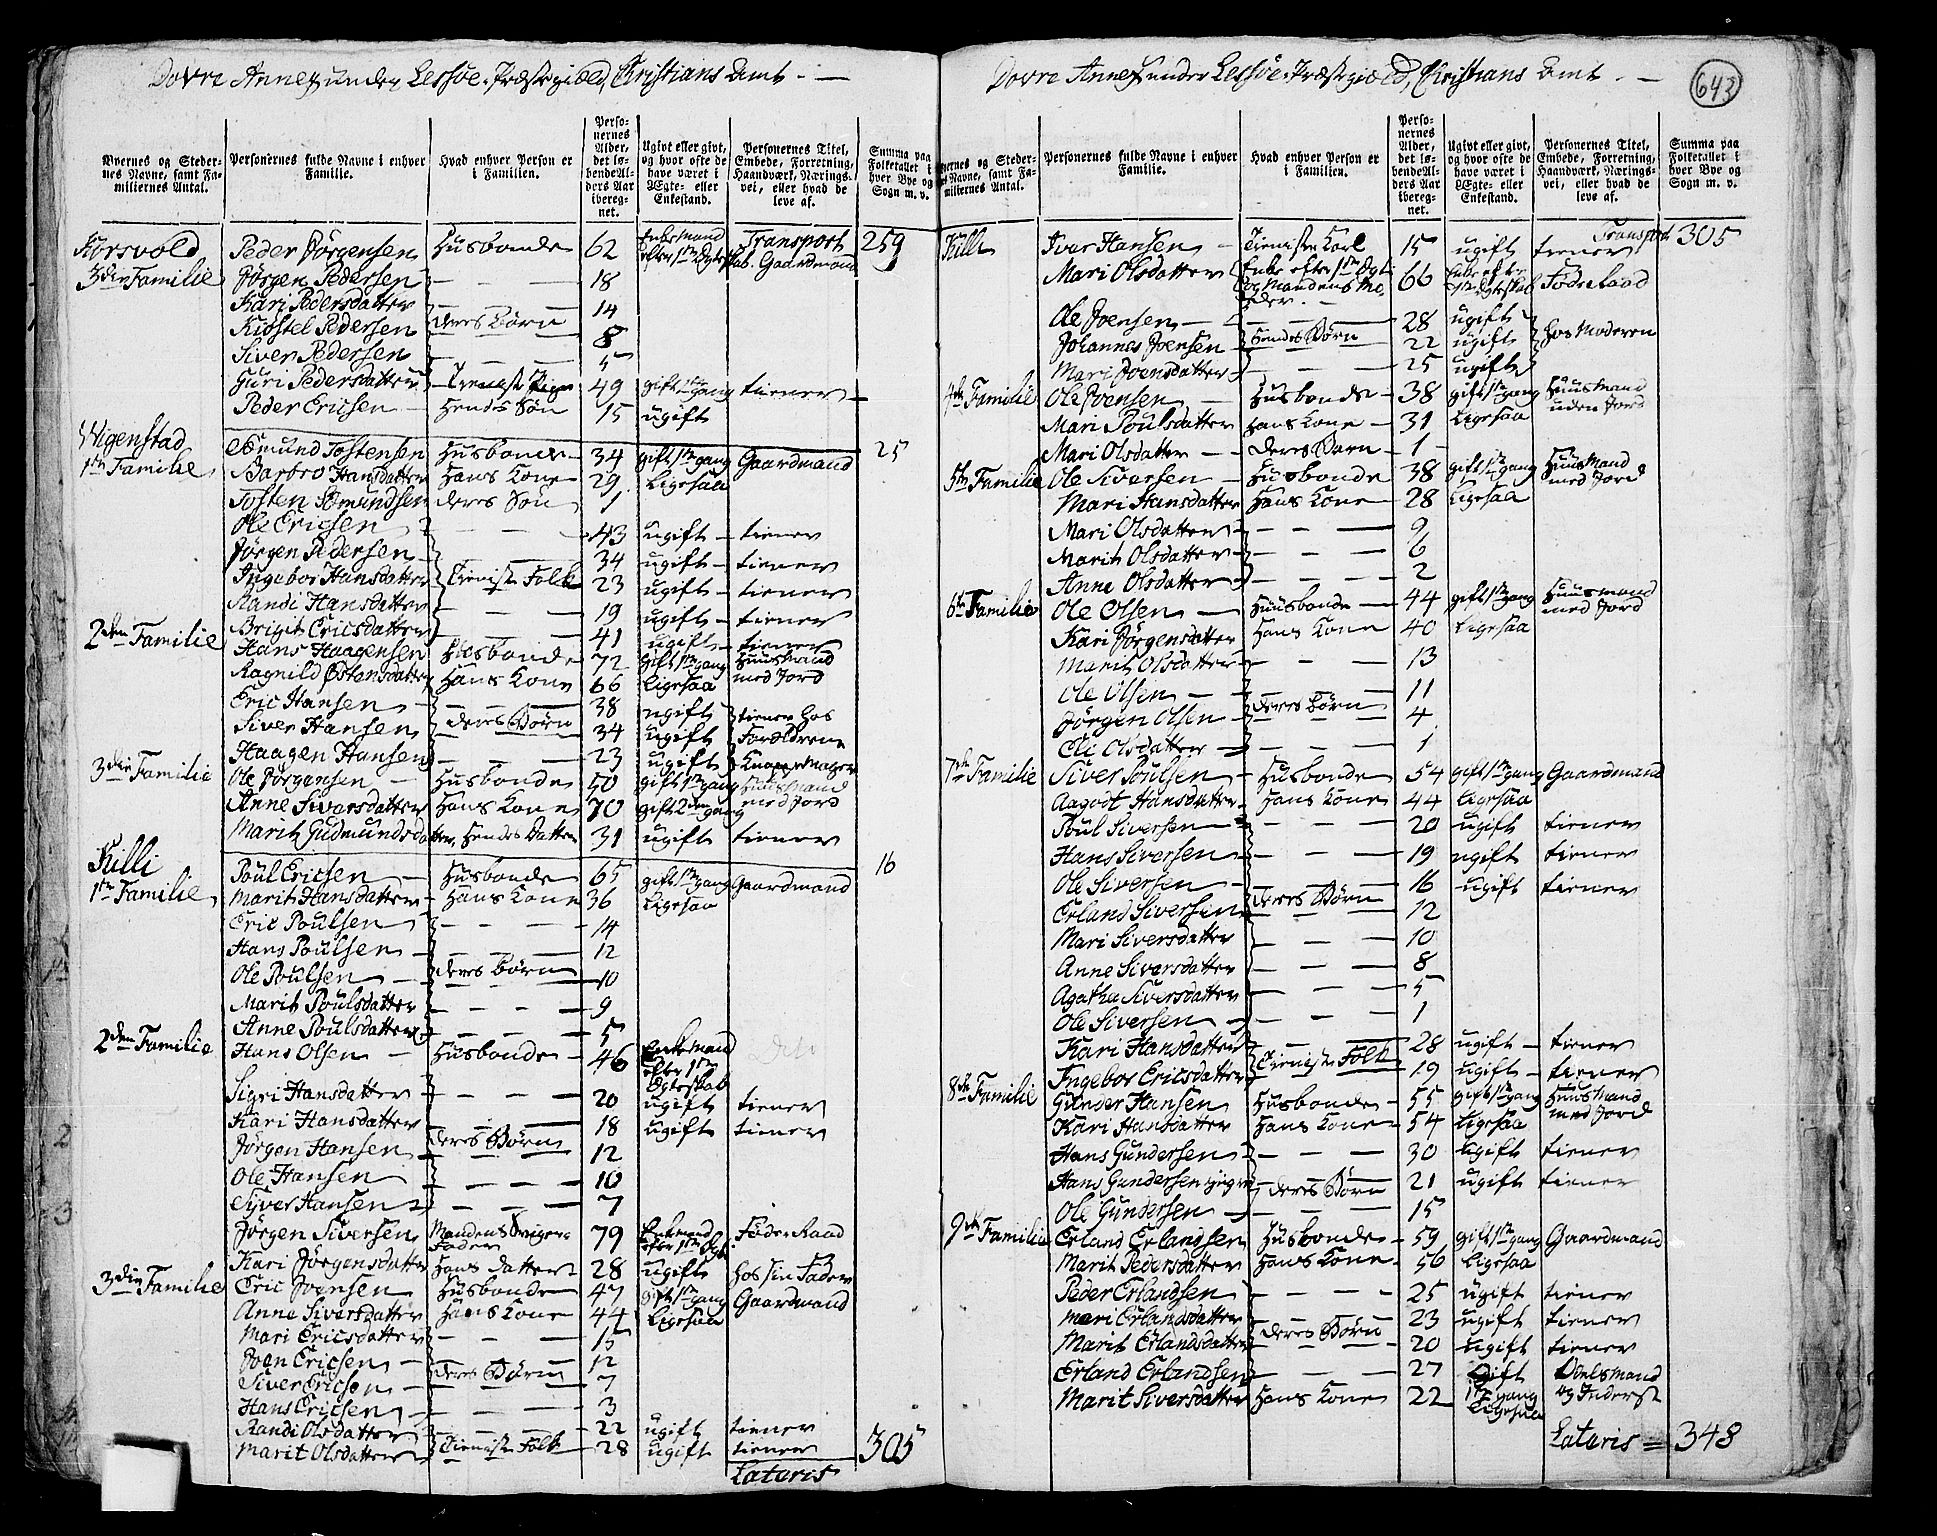 Dovre Annex under Lessøe Præstegield, Christians Amt.
Byernes og Steder-
nes Navne, samt Fa-
miliernes Antal.
Personernes fulde Navne i enhver
Familie.
Hvad enhver Person er
i Familien.
Perso-
nernes
Alder,
det lø-
bende Al-
ders Aar
ibereg-
net.
Ugivt eller givt,
og hvor ofte de
have været i
Ægte- eller
Enkestand.
Personernes Titel,
Embede, Forretning,
Haandværk, Nærings-
vei, eller hvad de
leve af.
Summa paa
Folketallet i
hver Bye og
Sogn m. v.
Transport 259
Peder Jørgensen Husbonde 62 Enkemand efter 1ste Ægteskab. Gaardmand
3die Familie Jørgen Pedersen 18
Kari Pedersdatter 14
Pedersen deres Børn 8
Siver Pedersen 5
Guri Pedersdatter Tieneste Pige 49 gift 1ste gang tiener
Peder Ericsen Hendes Søn 15 ugift
Wigenstad 25
1ste Familie Amund Tostensen Husbonde 34 gift 1ste gang Gaardmand
Barbro Hansdatter Hans Kone 29 Ligesaa
Tosten Amundsen deres Søn 1
Ole Ericsen 43 ugift tiener
Jørgen Pedersen 34 ugift tiener
Ingebor Hansdatter Tieniste Folk 23 ugift tiener
Randi Hansdatter 19 ugift tiener
Brigit Ericsdatter 41 ugift tiener
2den Familie Hans Haagensen Husbonde 72 gift 1ste gang Huusmand
Ragnild Østensdatter Hans Kone 66 Ligesaa med Jord
Eric Hansen 38 ugift
Siver Hansen deres Børn 34 ugift tiener hos Forældrene
Haagen Hansen 23 ugift
3die Familie Ole Jørgensen Husbonde 50 gift 1ste gang Huusmand
Anne Siversdatter Hans Kone 70 gift 2den gang med Jord
Marit Gudmundsdatter, Hendes Datter 31 ugift tiener
Killi 16
1ste Familie Poul Ericsen Husbonde 65 gift 1ste gang Gaardmand
Marit Hansdatter Hans Kone 36 Ligesaa
Eric Poulsen 14
Hans Poulsen 12
Ole Poulsen deres Børn 10
Marit Poulsdatter 9
Anne Poulsdatter 5
2den Familie Hans Olsen Husbonde 46 Enkemand efter 1ste Ægteskab
Sigri Hansdatter 20 ugift tiener
Kari Hansdatter 18 ugift tiener
Jørgen Hansen deres Børn 12
Ole Hansen 10
Syver Hansen 7
Jørgen Siversen Mandens Sviger Fader 79 Enkemand efter 1ste Ægt. Føderaad
Kari Jørgensdatter Hans datter 28 ugift hos sin Fader
3die Familie Eric Joensen Husbonde 47 gift 1ste gang Gaardmand
Anne Siversdatter Hans Kone 44 Ligesaa
Mari Ericsdatter 15
Joen Ericsen 12
Siver Ericsen deres Børn 7
Hans Ericsen 3
Randi Olsdatter 22 ugift tiener
Marit Olsdatter Tieniste Folk 28 ugift tiener
Lateris 305
643
Dovre Annex under Lessøe Præstegield, Christians Amt.
Byernes og Steder-
nes Navne, samt Fa-
miliernes Antal.
Personernes fulde Navne i enhver
Familie.
Hvad enhver Person er
i Familien.
Perso-
nernes
Alder,
det lø-
bende Al-
ders Aar
ibereg-
net.
Ugivt eller givt,
og hvor ofte de
have været i
Ægte- eller
Enkestand.
Personernes Titel,
Embede, Forretning,
Haandværk, Nærings-
vei, eller hvad de
leve af.
Summa paa
Folketallet i
hver Bye og
Sogn m. v.
Transport 305
Killi Iver Hansen Tieniste Karl 15 ugift tiener
Mari Olsdatter Enke efter 1ste Ægt. og Mandens Moder 66 Enke efter 1ste Ægteskab Føderaad
Ole Joensen 28 ugift
Johannes Joensen hendes Børn 22 ugift hos Moderen
Mari Joensdatter 25 ugift
4de Familie Ole Joensen Husbonde 38 gift 1ste gang Huusmand
Mari Poulsdatter hans Kone 31 Ligesaa uden Jord
Mari Olsdatter deres Barn 1
5te Familie Ole Siversen Husbonde 38 gift 1ste gang Huusmand
Mari Hansdatter Hans Kone 28 Ligesaa med Jord
Mari Olsdatter 9
Marit Olsdatter 6
Anne Olsdatter 2
6te Familie Ole Olsen Huusbonde 44 gift 1ste gang Huusmand
Kari Jørgensdatter Hans Kone 40 Ligesaa med Jord
Marit Olsdatter 13
Ole Olsen 11
Jørgen Olsen deres Børn 4
Eli Olsdatter 1
7de Familie Siver Poulsen Husbonde 54 gift 1ste gang Gaardmand
Aagodt Hansdatter Hans Kone 44 Ligesaa
Poul Siversen 20 ugift tiener
Hans Siversen 19 ugift tiener
Ole Siversen 16 ugift tiener
Erland Siversen deres Børn 12
Mari Siversdatter 10
Anne Siversdatter 8
Agathe Siversdatter 5
Ole Siversen 1
Kari Hansdatter 28 ugift tiener
Ingebor Ericsdatter Tieniste Folk 19 ugift tiener
8de Familie Gunder Hansen Husbonde 55 gift 1ste gang Huusmand
Kari Hansdatter Hans Kone 54 Ligesaa med Jord
Hans Gundersen 30 ugift tiener
Hans Gundersen yngre deres Børn 21 ugift tiener
Ole Gundersen 15
9de Familie Erland Erlandsen Husbonde 59 gift 1ste gang Gaardmand
Marit Pedersdatter Hans Kone 56 Ligesaa
Peder Erlandsen 25 ugift tiener
Mari Erlandsdatter 23 ugift tiener
Marit Erlandsdatter deres Børn 20 ugift tiener
Erland Erlandsen 27 Gift 1ste gang og Inderst
Marit Siversdatter Hans Kone 22 Ligesaa
Lateris = 348